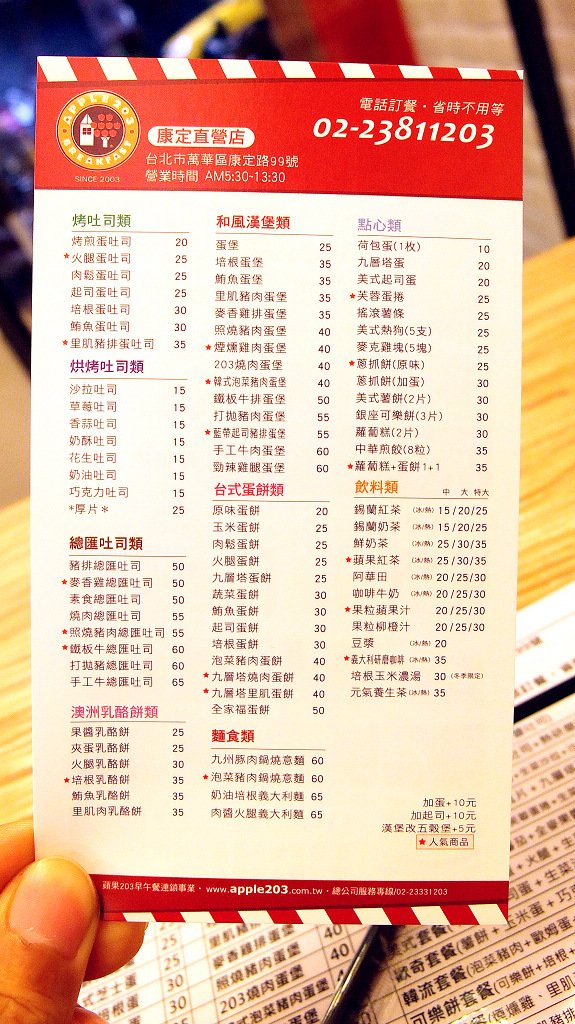 APPLE 203
BREAKFAST
SINCE 2003
康定直營店
台北市萬華區康定路99號
營業時間 AM5:30-13:30
電話訂餐・省時不用等
02-23811203
烤吐司類
烤煎蛋吐司 20
★火腿蛋吐司 25
肉鬆蛋吐司 25
起司蛋吐司 25
培根蛋吐司 30
鮪魚蛋吐司 30
★里肌豬排蛋吐司 35
烘烤吐司類
沙拉吐司 15
草莓吐司 15
香蒜吐司 15
奶酥吐司 15
花生吐司 15
奶油吐司 15
巧克力吐司 15
*厚片* 25
總匯吐司類
豬排總匯吐司 50
★麥香雞總匯吐司 50
素食總匯吐司 50
燒肉總匯吐司 55
★照燒豬肉總匯吐司 55
★鐵板牛總匯吐司 60
打拋豬總匯吐司 60
手工牛總匯吐司 65
澳洲乳酪餅類
果醬乳酪餅 25
夾蛋乳酪餅 25
火腿乳酪餅 30
★培根乳酪餅 35
鮪魚乳酪餅 35
里肌肉乳酪餅 35
和風漢堡類
蛋堡 25
培根蛋堡 35
鮪魚蛋堡 35
里肌豬肉蛋堡 35
麥香雞排蛋堡 35
照燒豬肉蛋堡 40
★煙燻雞肉蛋堡 40
203燒肉蛋堡 40
★韓式泡菜豬肉蛋堡 40
鐵板牛排蛋堡 50
打拋豬肉蛋堡 55
★藍帶起司豬排蛋堡 55
手工牛肉蛋堡 60
勁辣雞腿蛋堡 60
台式蛋餅類
原味蛋餅 20
玉米蛋餅 25
肉鬆蛋餅 25
火腿蛋餅 25
九層塔蛋餅 25
蔬菜蛋餅 30
鮪魚蛋餅 30
起司蛋餅 30
培根蛋餅 30
泡菜豬肉蛋餅 40
★九層塔燒肉蛋餅 40
★九層塔里肌蛋餅 40
全家福蛋餅 50
麵食類
九州豚肉鍋燒意麵 60
★泡菜豬肉鍋燒意麵 60
奶油培根義大利麵 65
肉醬火腿義大利麵 65
點心類
荷包蛋(1枚) 10
九層塔蛋 20
美式起司蛋 20
★芙蓉蛋捲 25
搖滾薯條 25
美式熱狗(5支) 25
麥克雞塊(5塊) 25
★蔥抓餅(原味) 25
蔥抓餅(加蛋) 30
美式薯餅(2片) 30
銀座可樂餅(3片) 30
蘿蔔糕(2片) 30
中華煎餃(8粒) 35
★蘿蔔糕+蛋餅1+1 35
飲料類 中 大 特大
錫蘭紅茶 (冰/熱) 15/20/25
錫蘭奶茶 (冰/熱) 15/20/25
鮮奶茶 (冰/熱) 25/30/35
★蘋果紅茶 (冰/熱) 25/30/35
阿華田 (冰/熱) 20/25/30
咖啡牛奶 (冰/熱) 20/25/30
★果粒蘋果汁 20/25/30
果粒柳橙汁 20/25/30
豆漿 (冰/熱) 20
★義大利研磨咖啡 (冰/熱) 35
培根玉米濃湯 30 (冬季限定)
元氣養生茶 (冰/熱) 35
加蛋+10元
加起司+10元
漢堡改五穀堡+5元
★人氣商品
蘋果203早午餐連鎖事業・www.apple203.com.tw・總公司服務專線/02-23331203
麥香雞排蛋堡
照燒豬肉蛋堡 40
203燒肉蛋堡 40